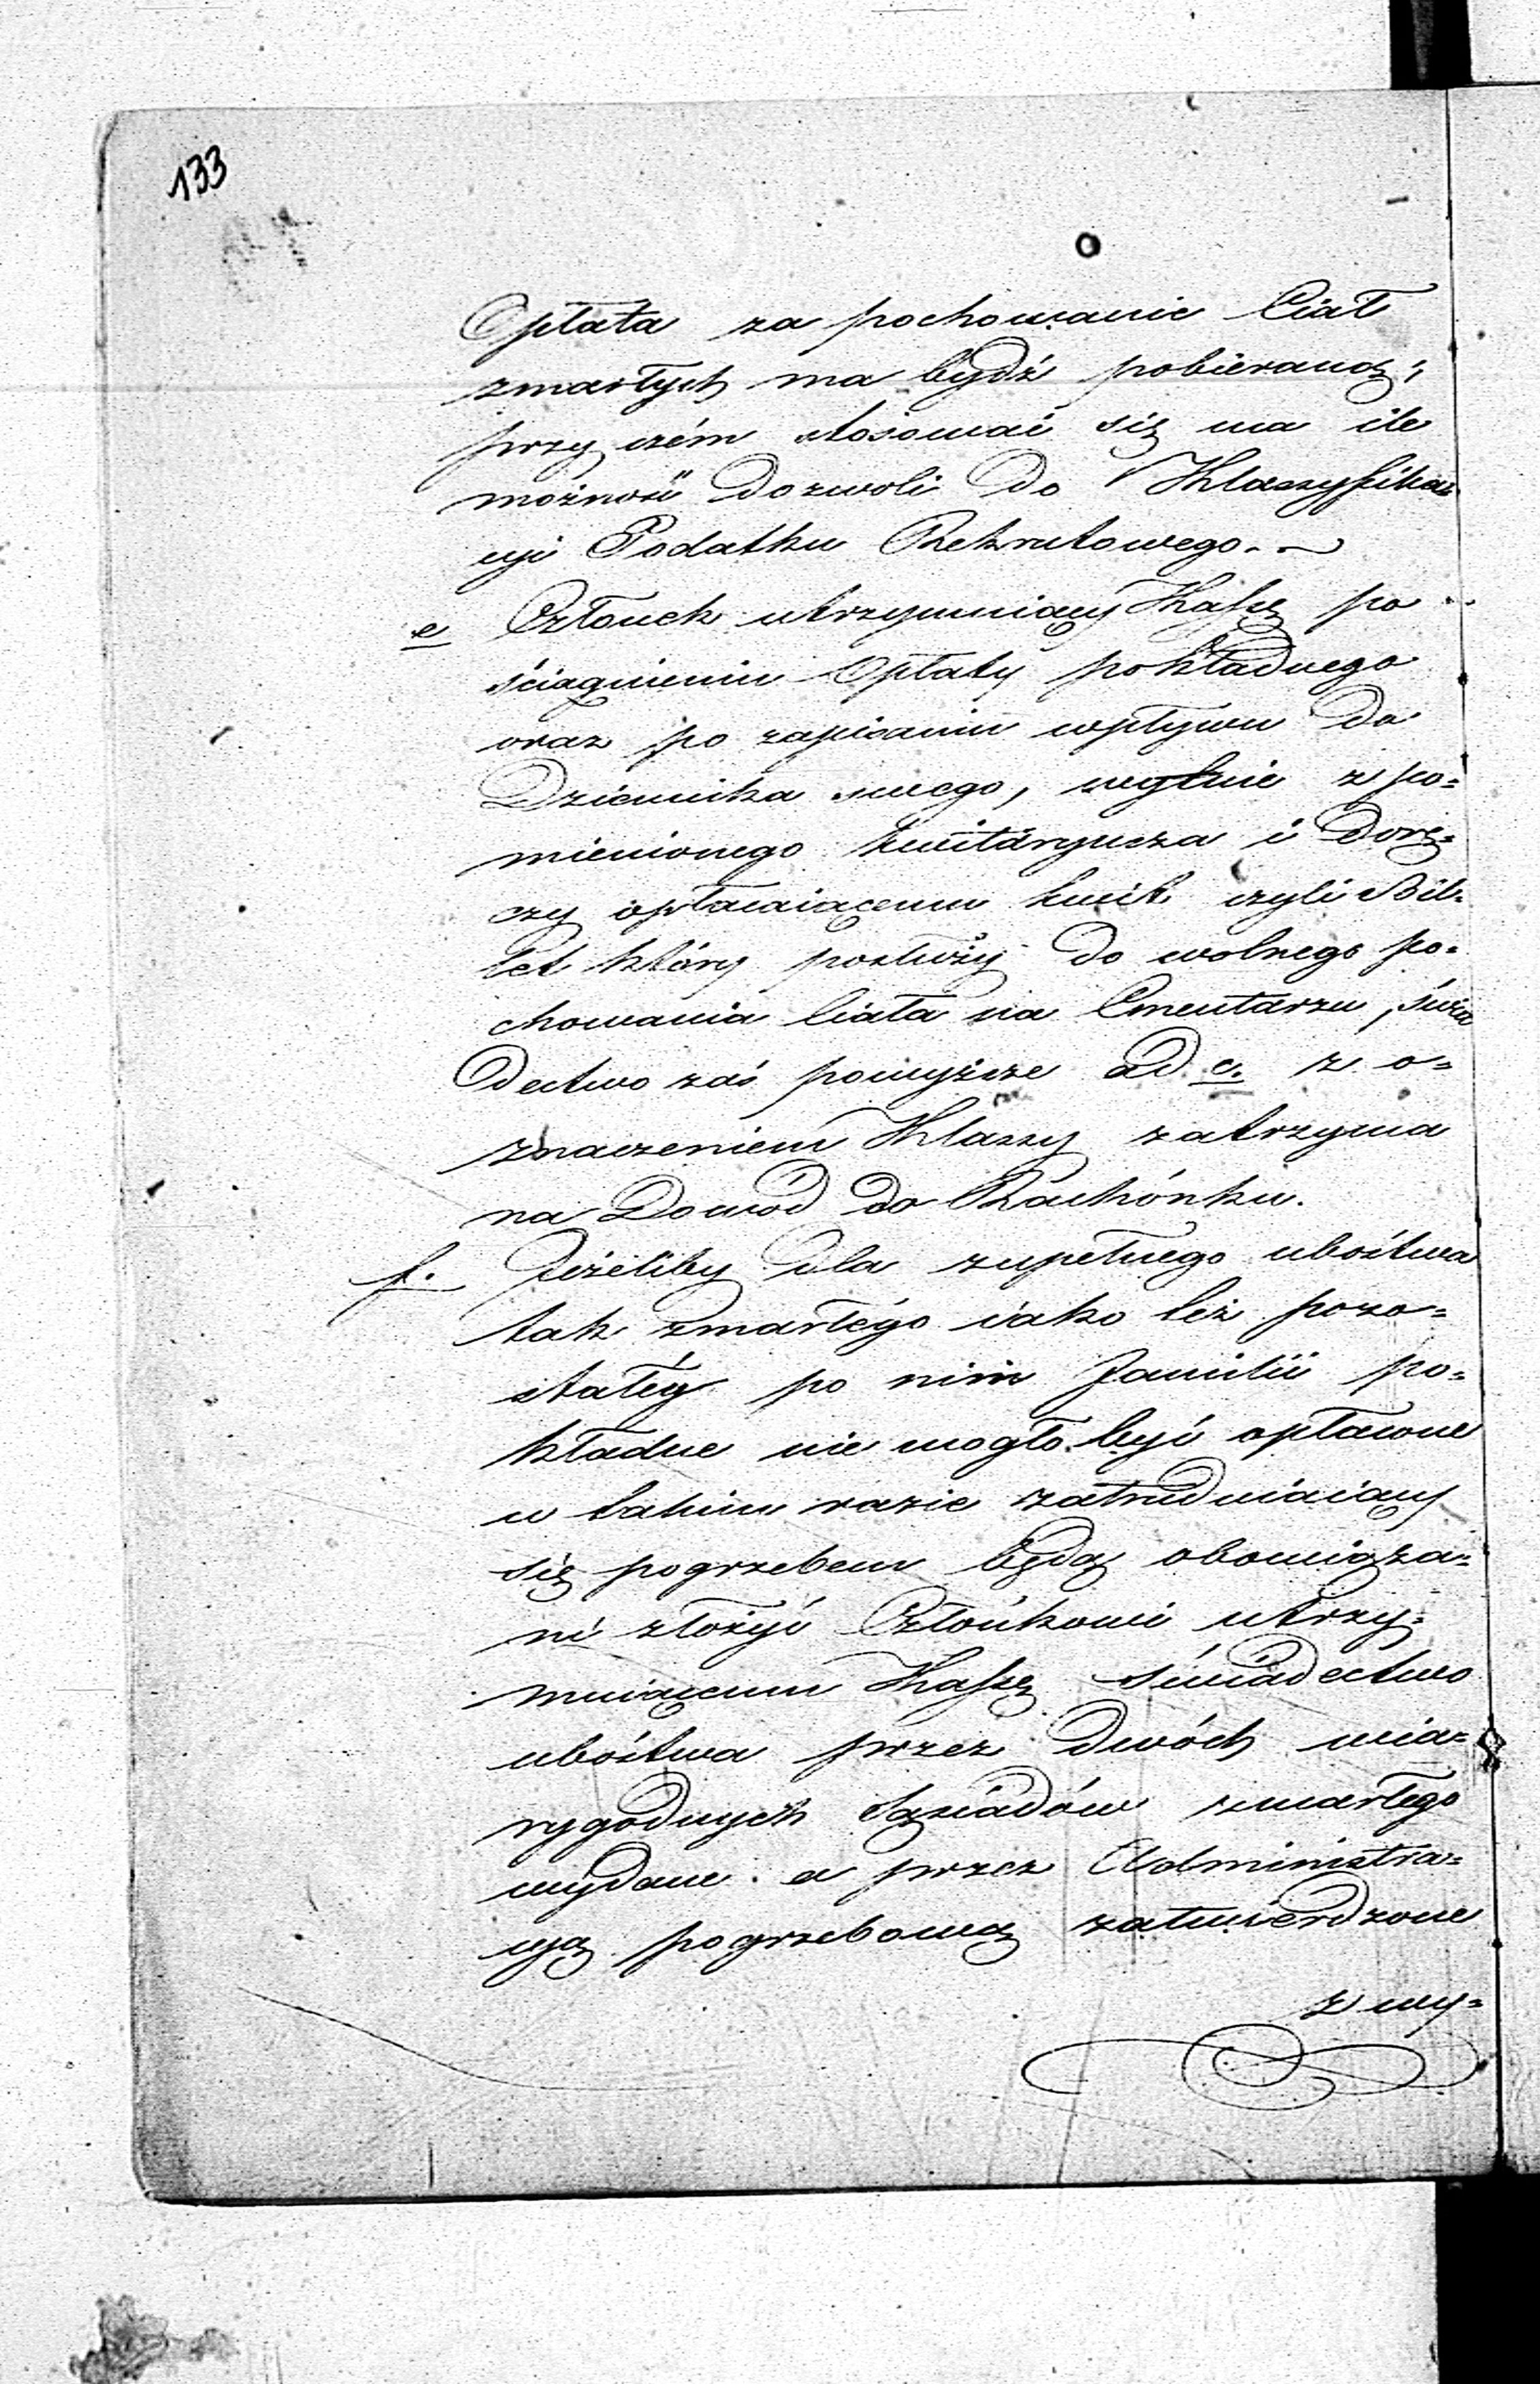 133
Opłata za pochowanie Ciał
zmarłych ma bydź pobieraną;
przy czém stosować się ma ile
możność dozwoli do Klassyfika=
cyi Podatku Rekrutowego.
e Członek utrzymuiący Kassę po
ściągnieniu Opłaty pokładnego
oraz po zapisaniu wpływu do
Dziennika swego, wytnie z po=
mienionego kwitaryusza i dorę=
czy opłacaiącemu kwit czyli Bil=
let który posłuży do wolnego po=
chowania Ciała na Cmentarzu, świa
dectwo zaś powyższe ad c. z o=
znaczeniem Klassy zatrzyma
na Dowód do Rachónku.
f. Jeżeliby dla zupełnego ubóstwa
tak zmarłego iako też pozo=
stałéy po nim Familii po=
kładne nie mogło być opłacone
w takim razie zatrudniaiący
się pogrzebem będą obowiąza=
ni złożyć Członkowi utrzy=
muiącemu Kassę świadectwo
ubóstwa przez dwóch wia=
rygodnych Sąsiadów zmarłego
wydane a przez Administra=
cyą pogrzebową zatwierdzone
z wy=